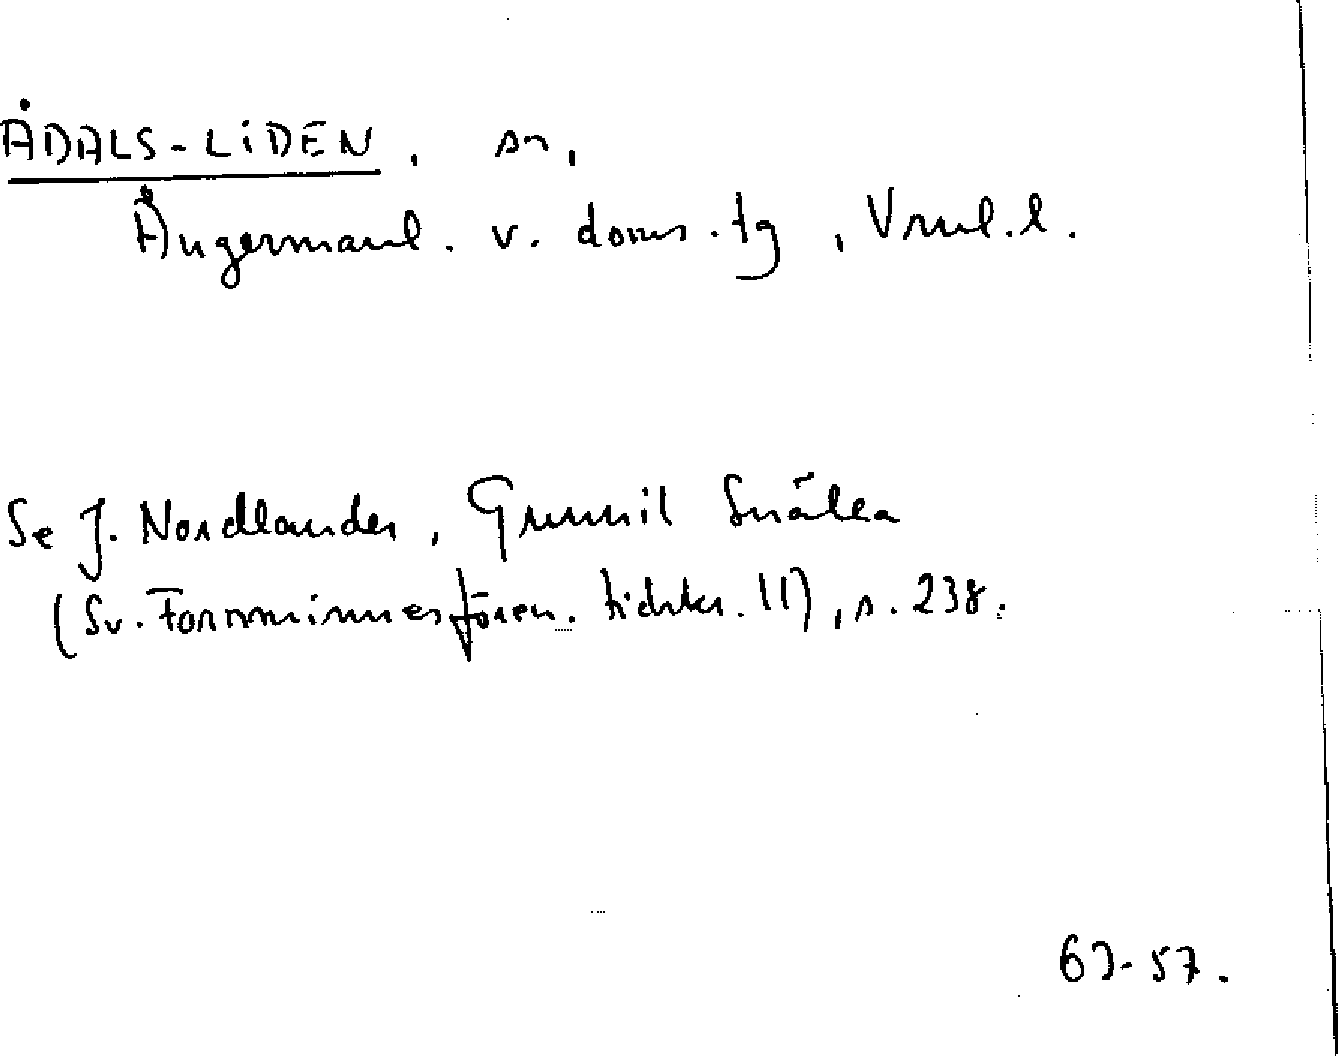 ÅDALS-LIDEN, sn,
Ångermanl. v. doms.tg, Vrnl.l.
Se J. Nordlander, Grumil Snålea
(Sv. Fornminnesfören. tidskr. 11), s. 238.
67-57.